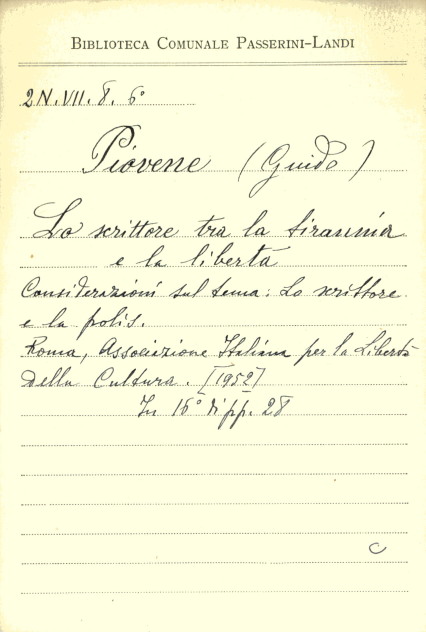 BIBLIOTECA COMUNALE PASSERINI-LANDI
2N.VII.8. 6°
Piovene (Guido)
Lo scrittore tra la tirannia
e la libertà
Considerazioni sul tema: Lo scrittore
e la polis.
Roma, Associazione Italiana per la Libertà
della Cultura. [1952]
In 16° di pp. 28
C